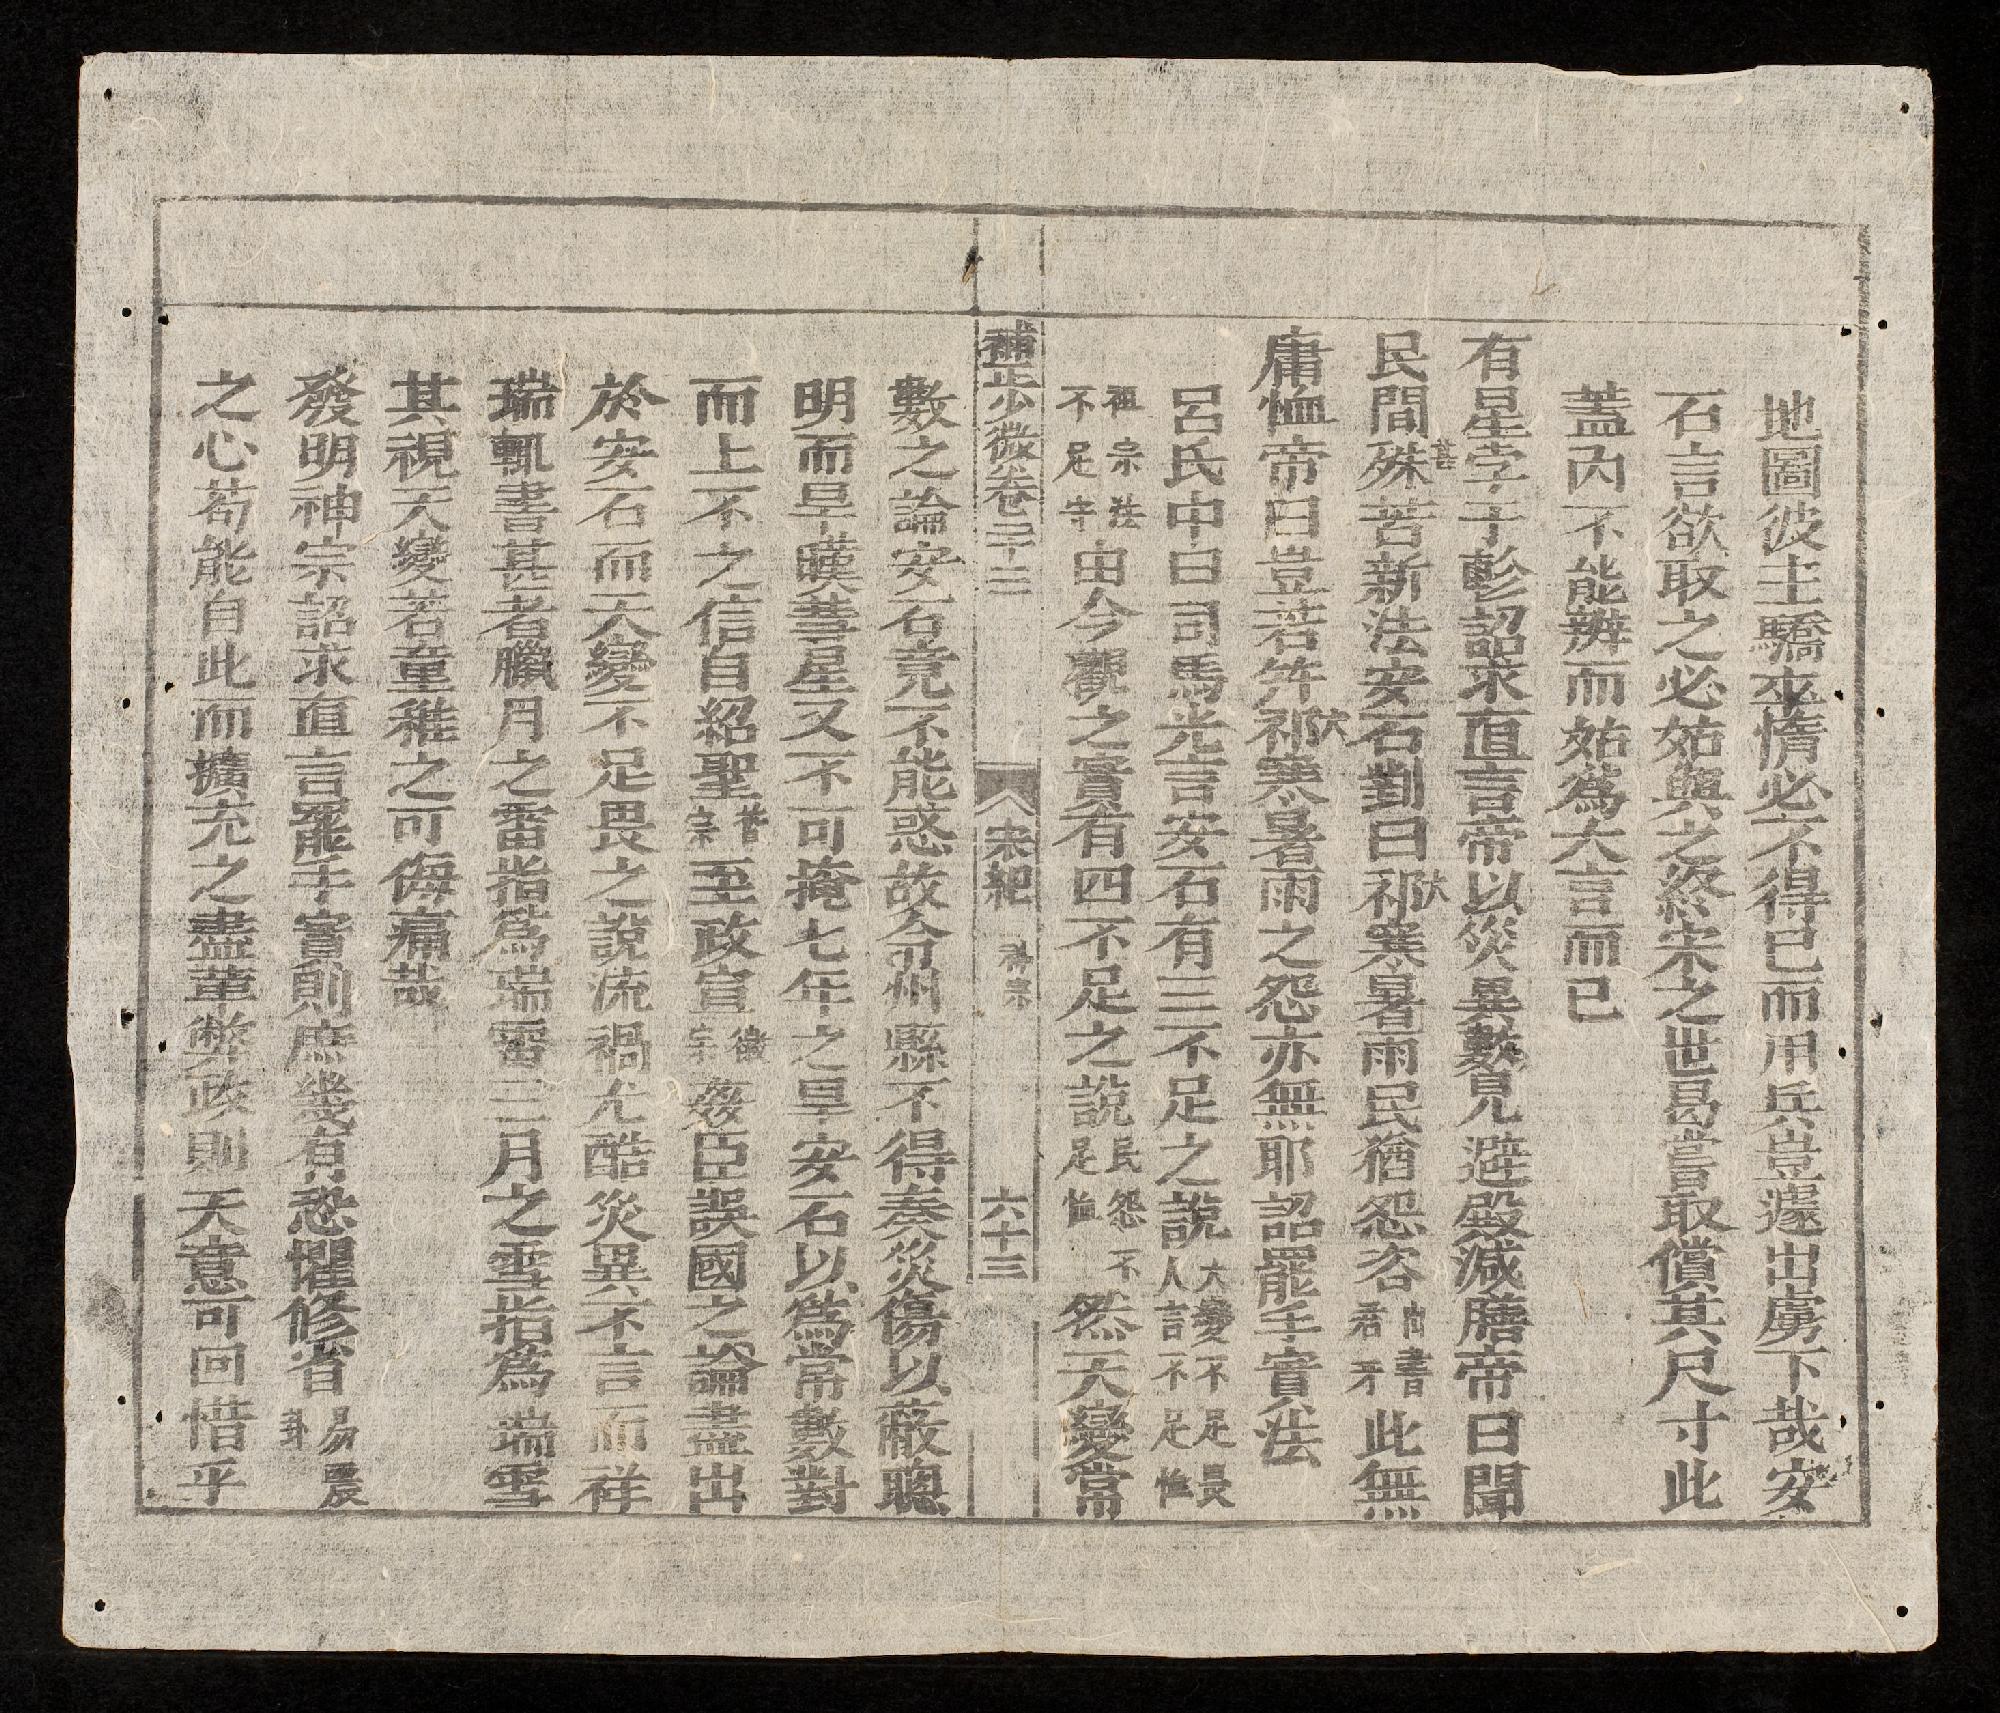 地圖彼主驕卒惰必不得已而用兵豈遽出虜下哉安
石言欲取之必姑與之終宋之世曷嘗取償其尺寸此
蓋內不能辨而姑爲大言而已
有星孛于軫詔求直言帝以災異數見避殿減膳帝曰聞
民間殊甚苦新法安石對曰祁大寒暑雨民猶怨咨尚書君牙此無
庸恤帝曰豈若并祁大寒暑雨之怨亦無耶詔罷手實法
呂氏中曰司馬光言安石有三不足之說大變不足畏人言不足恤
祖宗法不足守由今觀之實有四不足之說民怨不足恤然天變常
補正少微卷二十三 宋紀 神宗 六十三
數之論安石竟不能惑故令州縣不得奏災傷以蔽聰
明而旱嘆彗星又不可掩七年之旱安石以爲常數對
而上不之信自紹聖哲宗至政宣徽宗姦臣誤國之論盡出
於安石而天變不足畏之說流禍尤酷災異不言而祥
瑞輒書甚者臘月之雷指爲瑞雷三月之雪指爲瑞雪
其視天變若童稚之可侮痛哉
發明神宗詔求直言罷手實則庶幾有恐懼修省易震卦
之心苟能自此而擴充之盡革弊政則天意可回惜乎